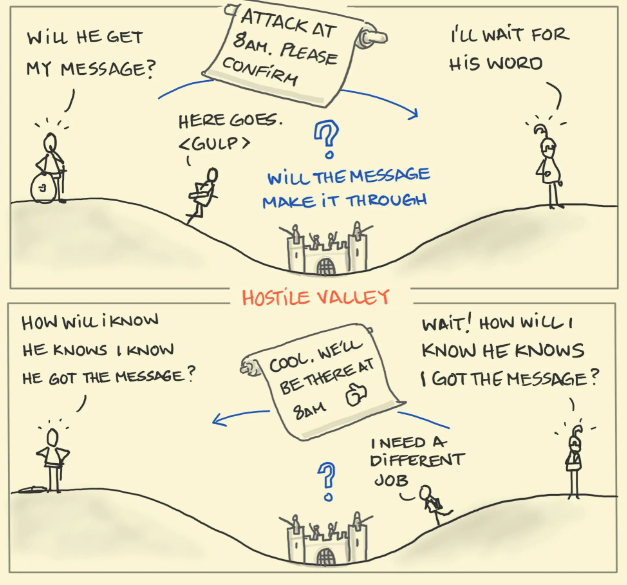 WILL HE GET
MY MESSAGE?
ATTACK AT
8AM. PLEASE
CONFIRM
I'LL WAIT FOR
HIS WORD
HERE GOES.
<GULP>
?
WILL THE MESSAGE
MAKE IT THROUGH
HOSTILE VALLEY
HOW WILL I KNOW
HE KNOWS I KNOW
HE GOT THE MESSAGE?
COOL. WE'LL
BE THERE AT
8AM
WAIT! HOW WILL I
KNOW HE KNOWS
I GOT THE MESSAGE?
I NEED A
DIFFERENT
JOB
?